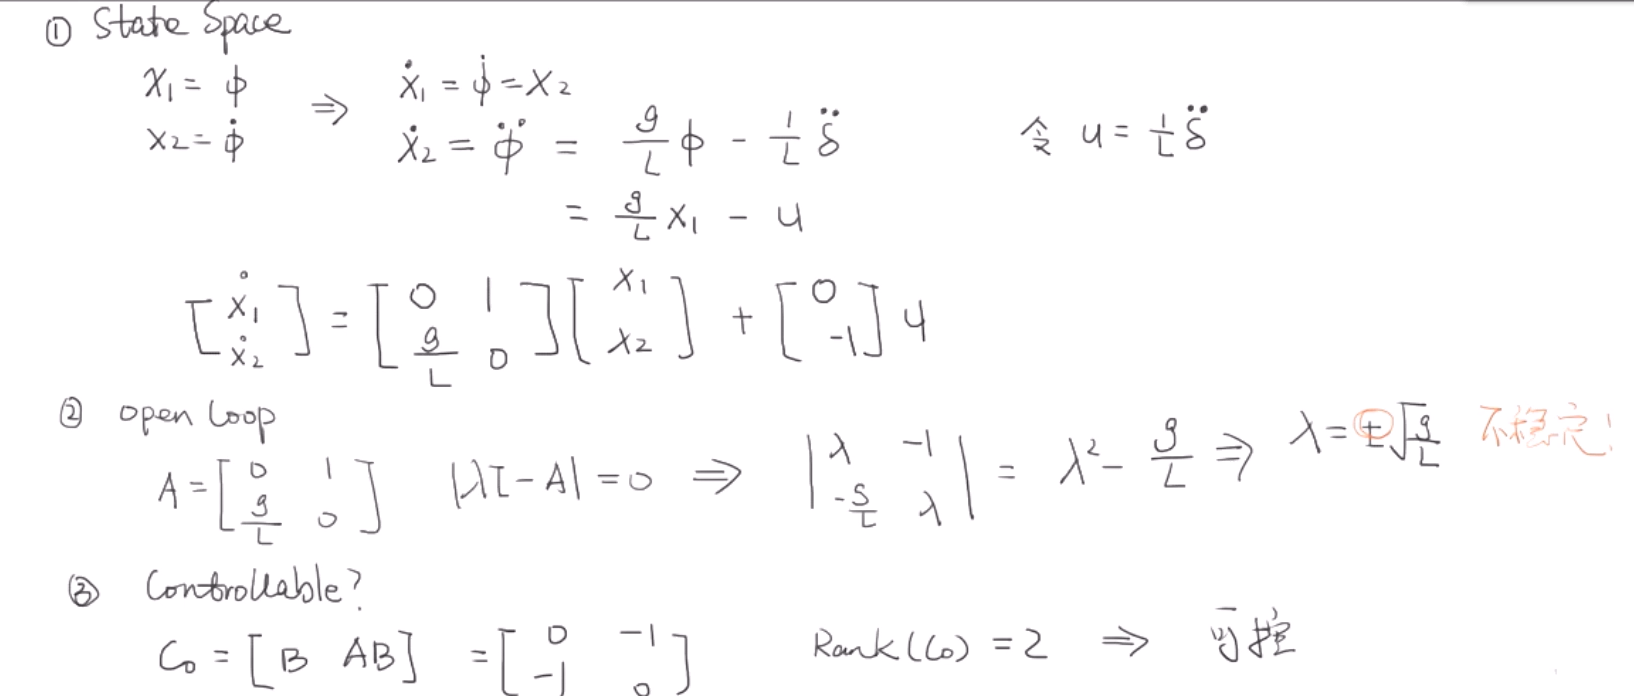 ① State Space
x₁ = ϕ ⇒ ẋ₁ = ϕ̇ = x₂
x₂ = ϕ̇ ẋ₂ = ϕ̈ = g/L ϕ - 1/L δ̈ 令 u = 1/L δ̈
= g/L x₁ - u
[ẋ₁; ẋ₂] = [0 1; g/L 0] [x₁; x₂] + [0; -1] u
② open loop
A = [0 1; g/L 0] |λI - A| = 0 ⇒ |λ -1; -g/L λ| = λ² - g/L ⇒ λ = ±√(g/L) 不稳定!
③ Controllable?
Co = [B AB] = [0 -1; -1 0] Rank(Co) = 2 ⇒ 可控